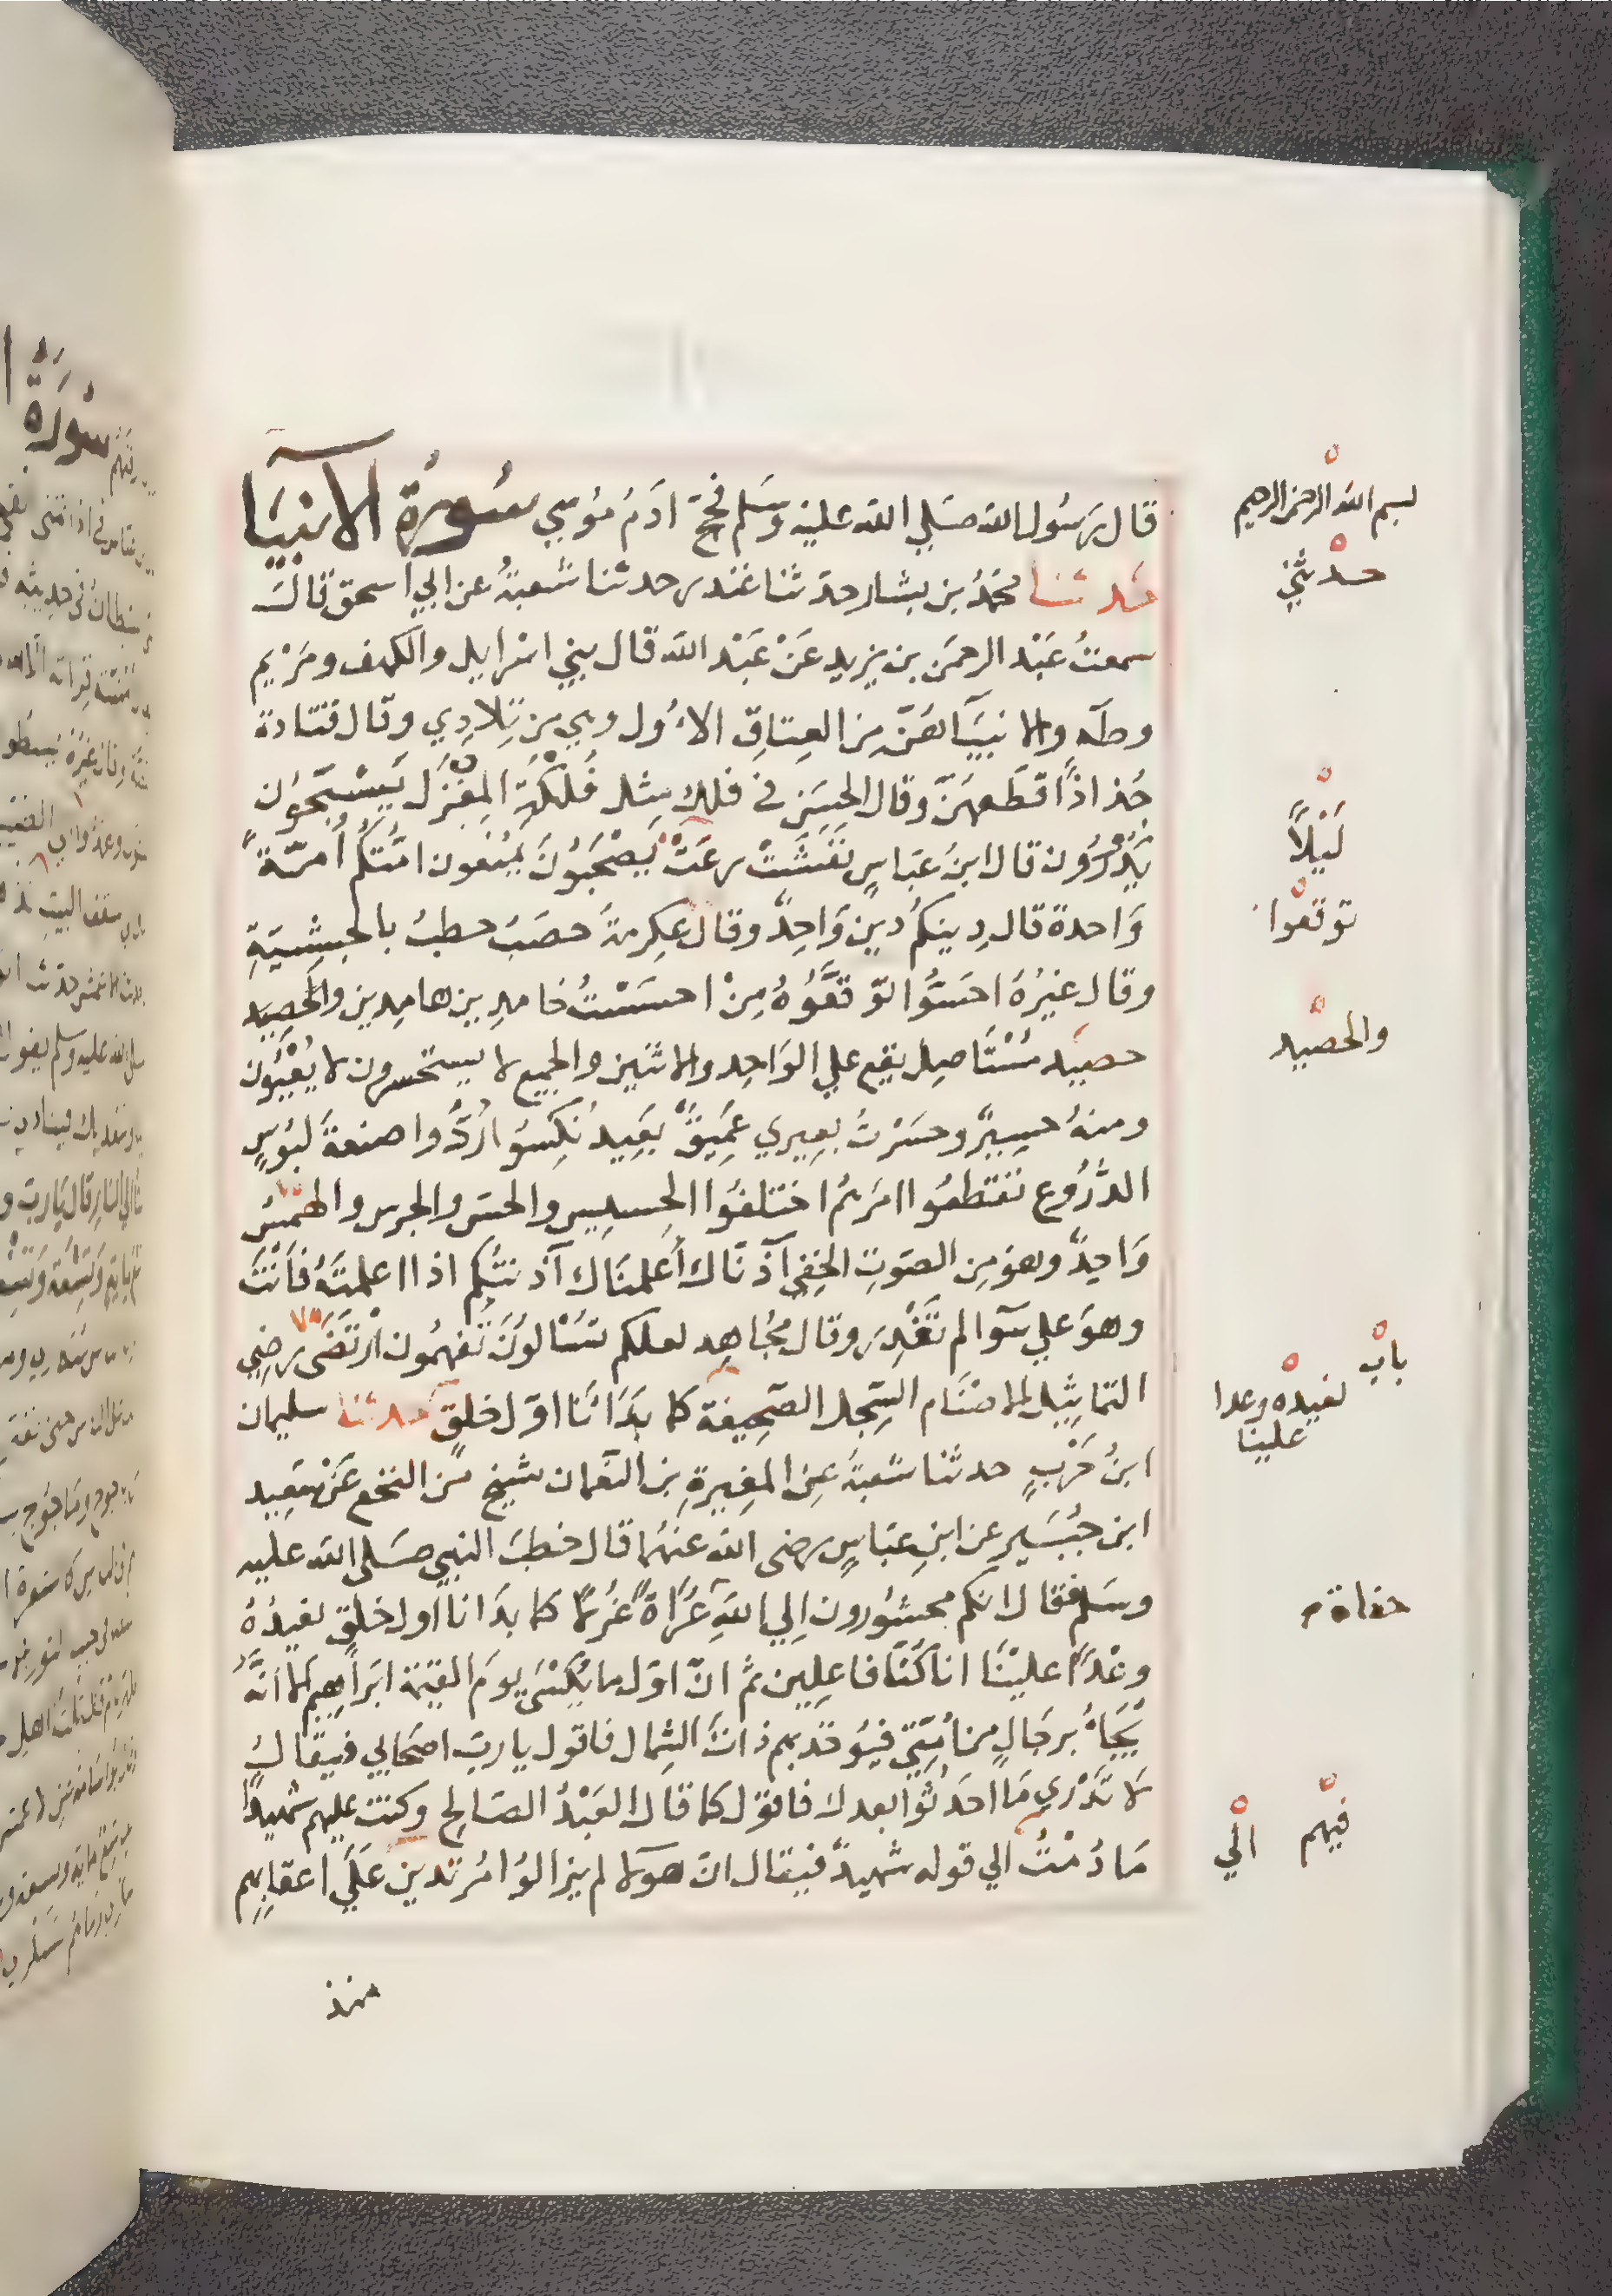 قال رسول الله صلي الله عليه وسلم فحج ادم موسي سورة الانبيا
حدثنا محمد بن بشار حدثنا غندر حدثنا شعبة عن ابي اسحق قال
سمعت عبد الرحمن بن يزيد عن عبد الله قال بني اسرايل والكهف ومريم
وطه والانبيآ هن من العتاق الاول وهي من تلادي وقال قتادة
جذاذا قطعهن وقال الحسن في فلك مثل فلكة المغزل يسبحون
يدورون قال ابن عباس نفشت رعت يصحبون يمنعون امتكم امة
واحدة قال دينكم دين واحد وقال عكرمة حصب حطب بالحبشية
وقال غيره احسوا توقعوه من احسست خامدين هامدين والحصيد
حصيد مستاصل يقع علي الواحد والاثنين والجميع لا يستحسرون لا يعيون
ومنه حسير وحسرت بعيري عميق بعيد نكسوا ردوا صنعة لبوس
الدروع تقطعوا امرهم اختلفوا الحسيس والحس والجرس والهمس
واحد وهو من الصوت الخفي آذناك أعلمناك آذنتكم اذا اعلمته فانت
وهو علي سوآ لم تغدر وقال مجاهد لعلكم تسئلون تفهمون ارتضى رضي
التماثيل الاصنام السجل الصحيفة كما بدأنا اول خلق حدثنا سليمان
ابن حرب حدثنا شعبة عن المغيرة بن النعمان شيخ من النخع عن سعيد
ابن جبير عن ابن عباس رضى الله عنهما قال خطب النبي صلى الله عليه
وسلم فقال انكم محشورون الي الله عراة غرلا كما بدانا اول خلق نعيده
وعدا علينا انا كنا فاعلين ثم ان اول ما يكسى يوم القيمة ابراهيم الا انه
يجاء برجال من امتي فيوخذ بهم ذات الشمال فاقول يا رب اصحابي فيقال
لا تدري ما احدثوا بعدك فاقول كما قال العبد الصالح وكنت عليهم شهيدا
ما دمت الي قوله شهيد فيقال ان هولآ لم يزالوا مرتدين علي اعقابهم
منذ
بسم الله الرحمن الرحيم
حدثني
ليلا
توقعوا
والحصيد
باب
نعيده وعدا
علينا
حفاة
فيهم الي